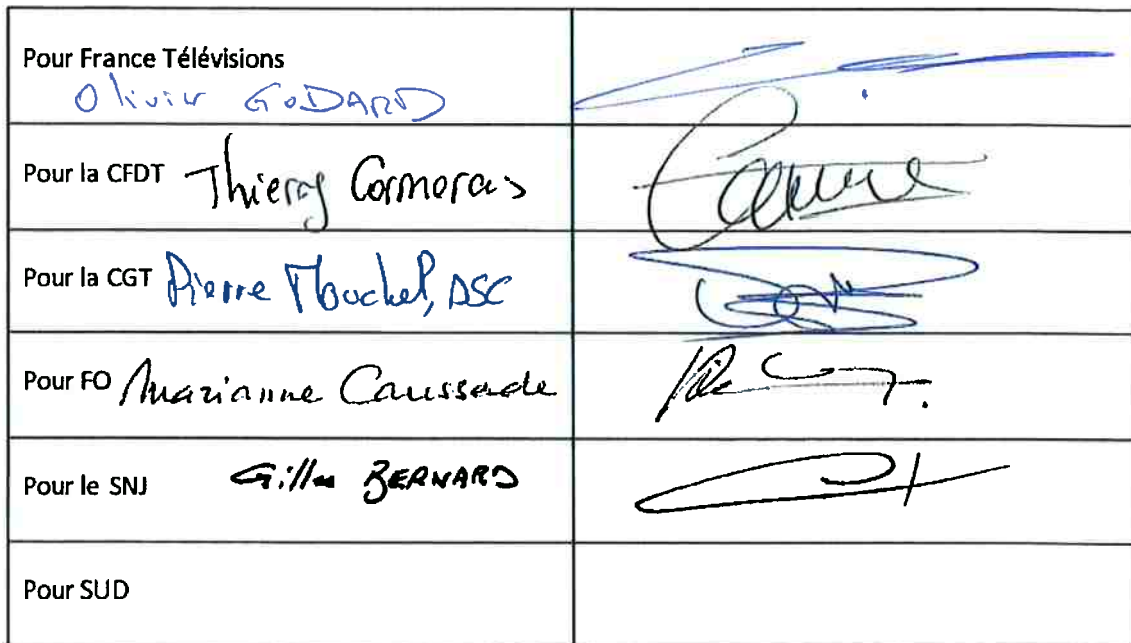 Pour France Télévisions
Olivier GODARD
Pour la CFDT Thierry Cormerais
Pour la CGT Pierre Mouchel, DSC
Pour FO Marianne Caussade
Pour le SNJ Gilles BERNARD
Pour SUD